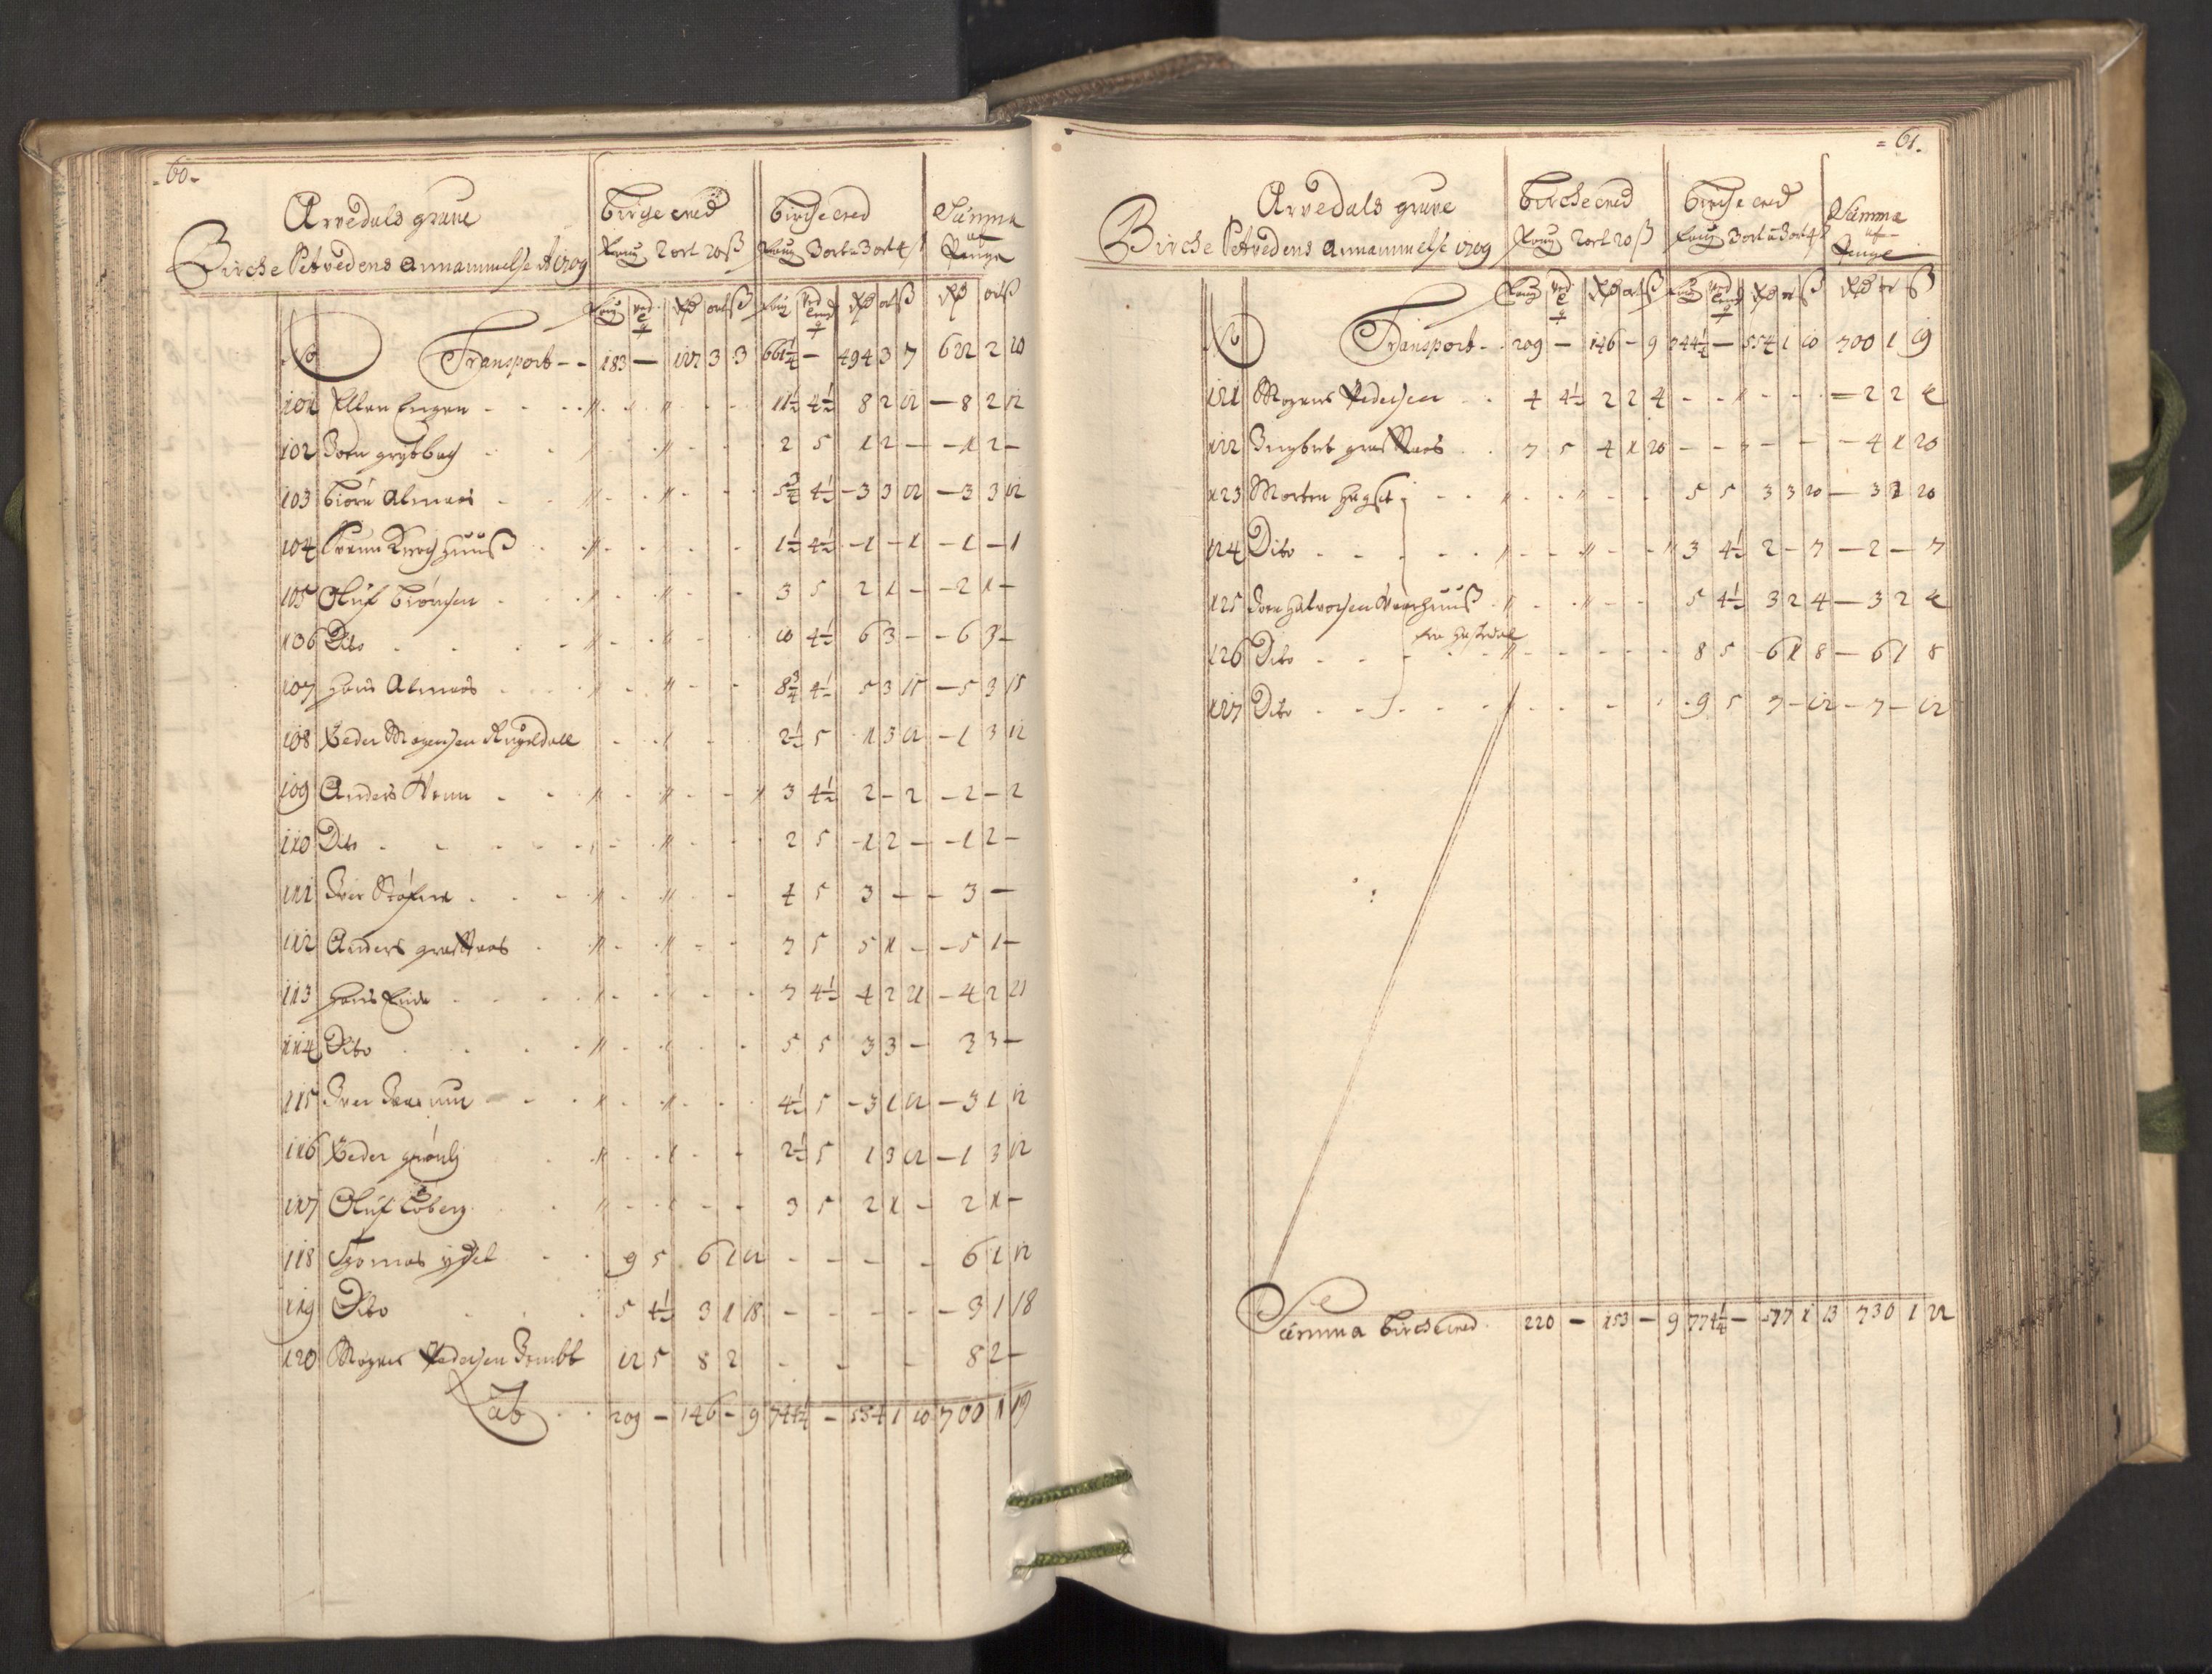 - 60 -
Arvedals grube
Birche Setvedens Annammelse Ao 1709
Birche ved
faug 2 ort 20 ß
Birche ved
faug 3 ort a 3 ort 4 ß
Summa
af
Penge
No Transport - - 183 — 127 3 3 661 1/4 — 494 3 7 622 2 10
101 Ellen Engen - - - 11 1/2 4 1/2 8 2 12 — 8 2 12
102 Joen grytbach 2 5 1 2 — — 1 2 —
103 Biörn Almaas 5 3/4 4 1/2 — 3 3 12 — 3 3 12
104 Kirchhuuß 1 1/2 4 1/2 — 1 — 1 — 1 — 1
105 Oluf Biörnsen 3 5 2 1 — — 2 1 —
106 Dito 10 4 1/2 6 3 — — 6 3 —
107 Hans Almaas 8 3/4 4 1/2 5 3 15 — 5 3 15
108 Peder Mogensen Rugldall 2 1/2 5 1 3 12 — 1 3 12
109 Anders 3 4 1/2 2 — 2 — 2 — 2
110 Dito 2 5 — 1 2 — — 1 2 —
111 Iver 4 5 3 — — 3 —
112 Anders graSvas 7 5 5 1 — — 5 1 —
113 Hans Eide 7 4 1/2 4 2 21 — 4 2 21
114 Dito 5 5 3 3 — 3 3 —
115 Iver 4 1/2 5 — 3 1 12 — 3 1 12
116 Peder grönli 2 1/2 5 1 3 12 — 1 3 12
117 Oluf Coberg 3 5 2 1 — 2 1 —
118 Thomas ydset 9 5 6 1 12 - - - - 6 1 12
119 Dito 5 4 1/2 3 1 18 - - - - 3 1 18
120 Mogens Pedersen 12 5 8 2 - - - 8 2 —
Lat 209 — 146 — 9 744 1/4 — 554 1 10 700 1 19
= 61.
Arvedals grube
Birche Setvedens Annammelse 1709
Birche ved
faug 2 ort 20 ß
Birche ved
faug 3 ort a 3 ort 4 ß
Summa
af
Penge
No Transport - 209 — 146 — 9 744 1/4 — 554 1 10 700 1 19
121 Mogens Pedersen 4 4 1/2 2 2 4 - - - — 2 2 4
122 Ingbret graSvaas 7 5 4 1 20 - - - — 4 1 20
123 Morten 5 5 3 3 20 — 3 3 20
124 Dito 3 4 1/2 2 — 7 — 2 — 7
125 Joen Halvorsen 5 4 1/2 3 2 4 — 3 2 4
126 Dito 8 5 6 1 8 — 6 1 8
127 Dito 9 5 7 — 12 — 7 — 12
Summa Birche ved 220 — 153 — 9 774 1/4 — 577 1 13 730 1 22